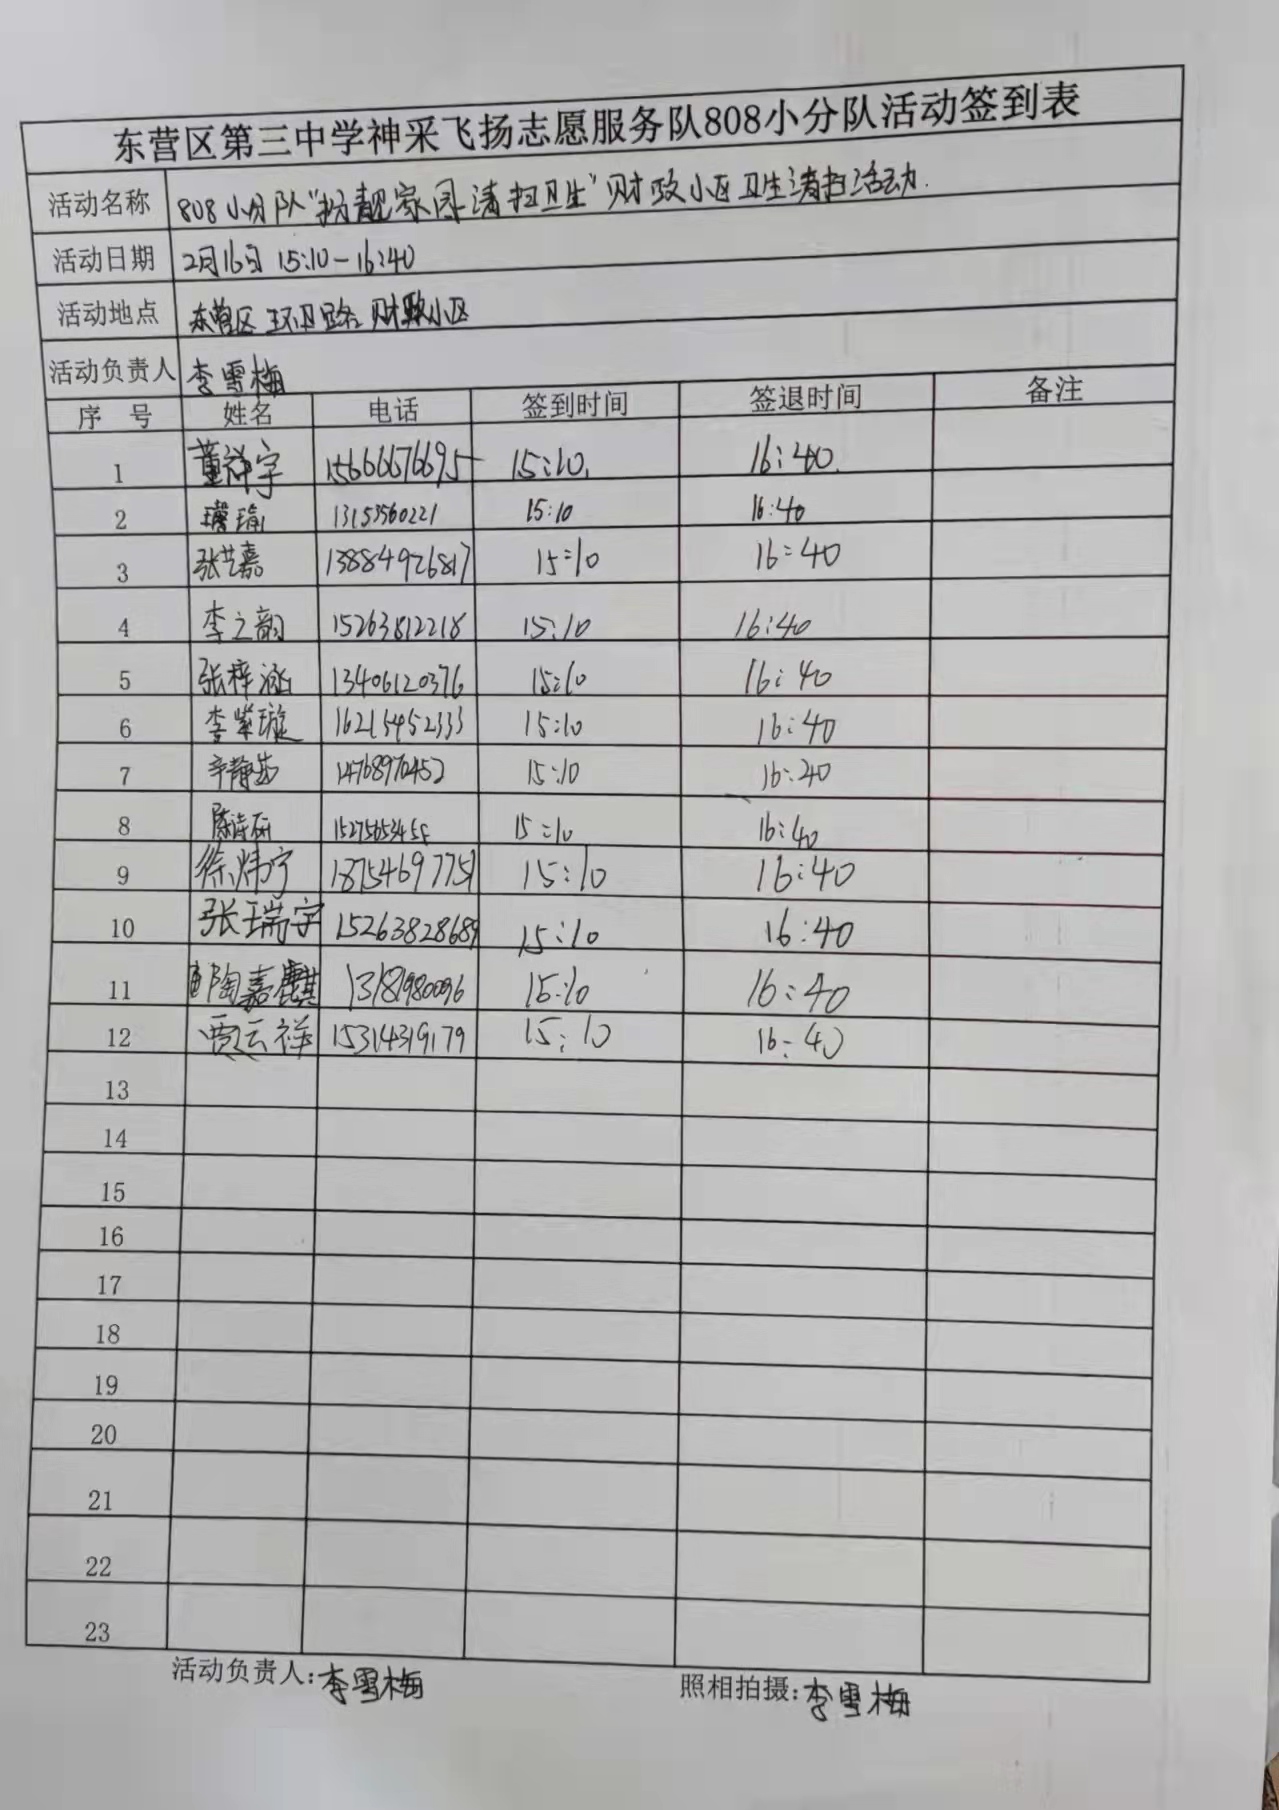 东营区第三中学神采飞扬志愿服务队808小分队活动签到表
活动名称 808小分队“扮靓家园清扫卫生”财政小区卫生清扫活动.
活动日期 2月16日 15:10-16:40
活动地点 东营区 环卫路 财政小区
活动负责人 李雪梅
序 号 姓名 电话 签到时间 签退时间 备注
1 董祥宇 15666676695 15:10. 16:40.
2 13153560221 15:10 16:40
3 张艺嘉 13884926817 15:10 16:40
4 李之韵 15263812218 15:10 16:40
5 张梓涵 13406120376 15:10 16:40
6 李紫璇 16215452333 15:10 16:40
7 辛静茹 14768970452 15:10 16:40
8 陈诗研 15:10 16:40
9 徐炜宁 18754697757 15:10 16:40
10 张瑞宇 15263828689 15:10 16:40
11 陶嘉麒 13181980096 15:10 16:40
12 贾云祥 15314319179 15:10 16:40
13
14
15
16
17
18
19
20
21
22
23
活动负责人:李雪梅 照相拍摄:李雪梅